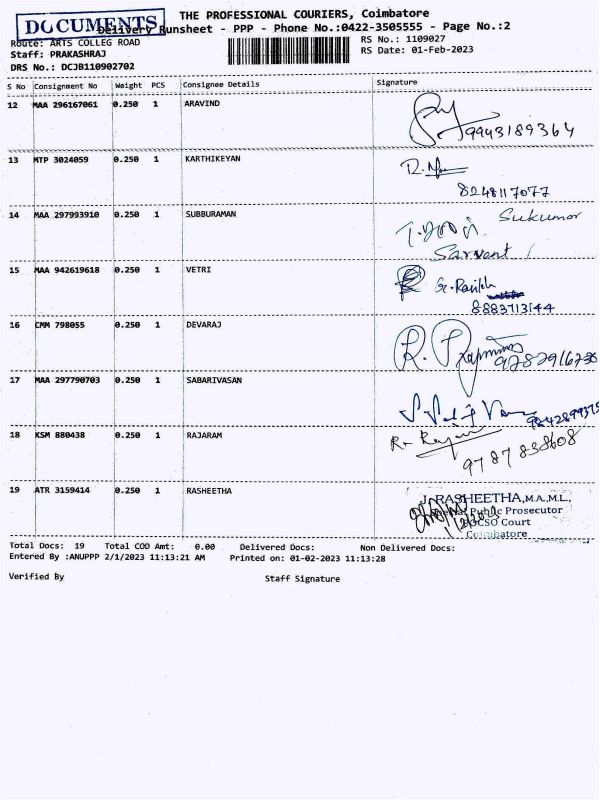 DOCUMENTS
THE PROFESSIONAL COURIERS, Coimbatore
Delivery Runsheet - PPP - Phone No.:0422-3505555 - Page No.:2
Route: ARTS COLLEG ROAD RS No.: 1109027
Staff: PRAKASHRAJ RS Date: 01-Feb-2023
DRS No.: DCJB110902702
S No Consignment No Weight PCS Consignee Details Signature
12 MAA 296167061 0.250 1 ARAVIND
9943189364
13 MTP 3024059 0.250 1 KARTHIKEYAN
8248117077
14 MAA 297993910 0.250 1 SUBBURAMAN Sukumar
Sarvent
15 MAA 942619618 0.250 1 VETRI
8883713144
16 CMM 798055 0.250 1 DEVARAJ
17 MAA 297790703 0.250 1 SABARIVASAN
18 KSM 880438 0.250 1 RAJARAM
9787838608
19 ATR 3159414 0.250 1 RASHEETHA J.RASHEETHA,M.A.M.L.,
Public Prosecutor
POCSO Court
Coimbatore
Total Docs: 19 Total COD Amt: 0.00 Delivered Docs: Non Delivered Docs:
Entered By :ANUPPP 2/1/2023 11:13:21 AM Printed on: 01-02-2023 11:13:28
Verified By Staff Signature